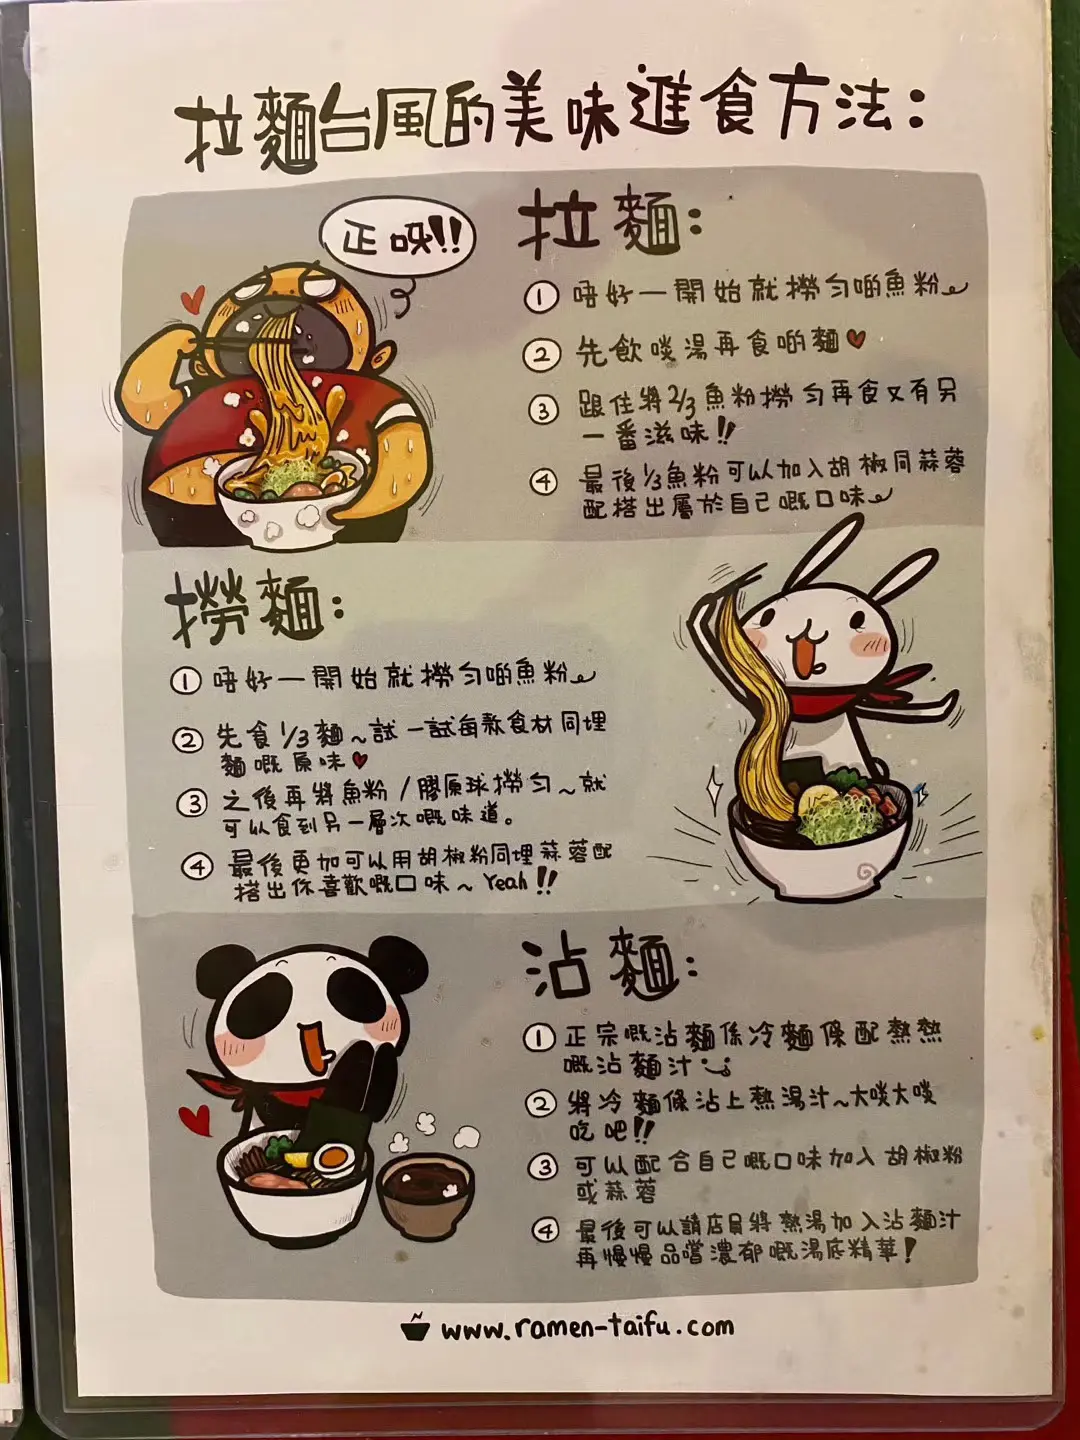 拉麵台風的美味進食方法:
正呀!!
拉麵:
① 唔好一開始就撈勻啲魚粉
② 先飲啖湯再食啲麵
③ 跟住將2/3魚粉撈勻再食又有另
一番滋味!!
④ 最後1/3魚粉可以加入胡椒同蒜蓉
配搭出屬於自己嘅口味
撈麵:
① 唔好一開始就撈勻啲魚粉
② 先食1/3麵~試一試每款食材同埋
麵嘅原味
③ 之後再將魚粉/膠原球撈勻~就
可以食到另一層次嘅味道。
④ 最後更加可以用胡椒粉同埋蒜蓉配
搭出你喜歡嘅口味~Yeah!!
沾麵:
① 正宗嘅沾麵係冷麵條配熱熱
嘅沾麵汁
② 將冷麵條沾上熱湯汁~大啖大啖
吃吧!!
③ 可以配合自己嘅口味加入胡椒粉
或蒜蓉
④ 最後可以請店員將熱湯加入沾麵汁
再慢慢品嚐濃郁嘅湯底精華!
www.ramen-taifu.com